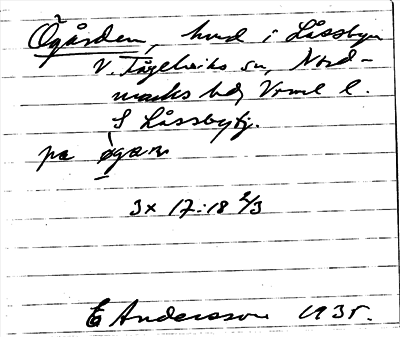 Ögården, hmd i Låssbyn
V. Fågelviks sn, Nord-
marks hd, Vrml l.
S Låssbytj.
pa øgæṛn
3x 17:18 2/3
E Andersson 1935.